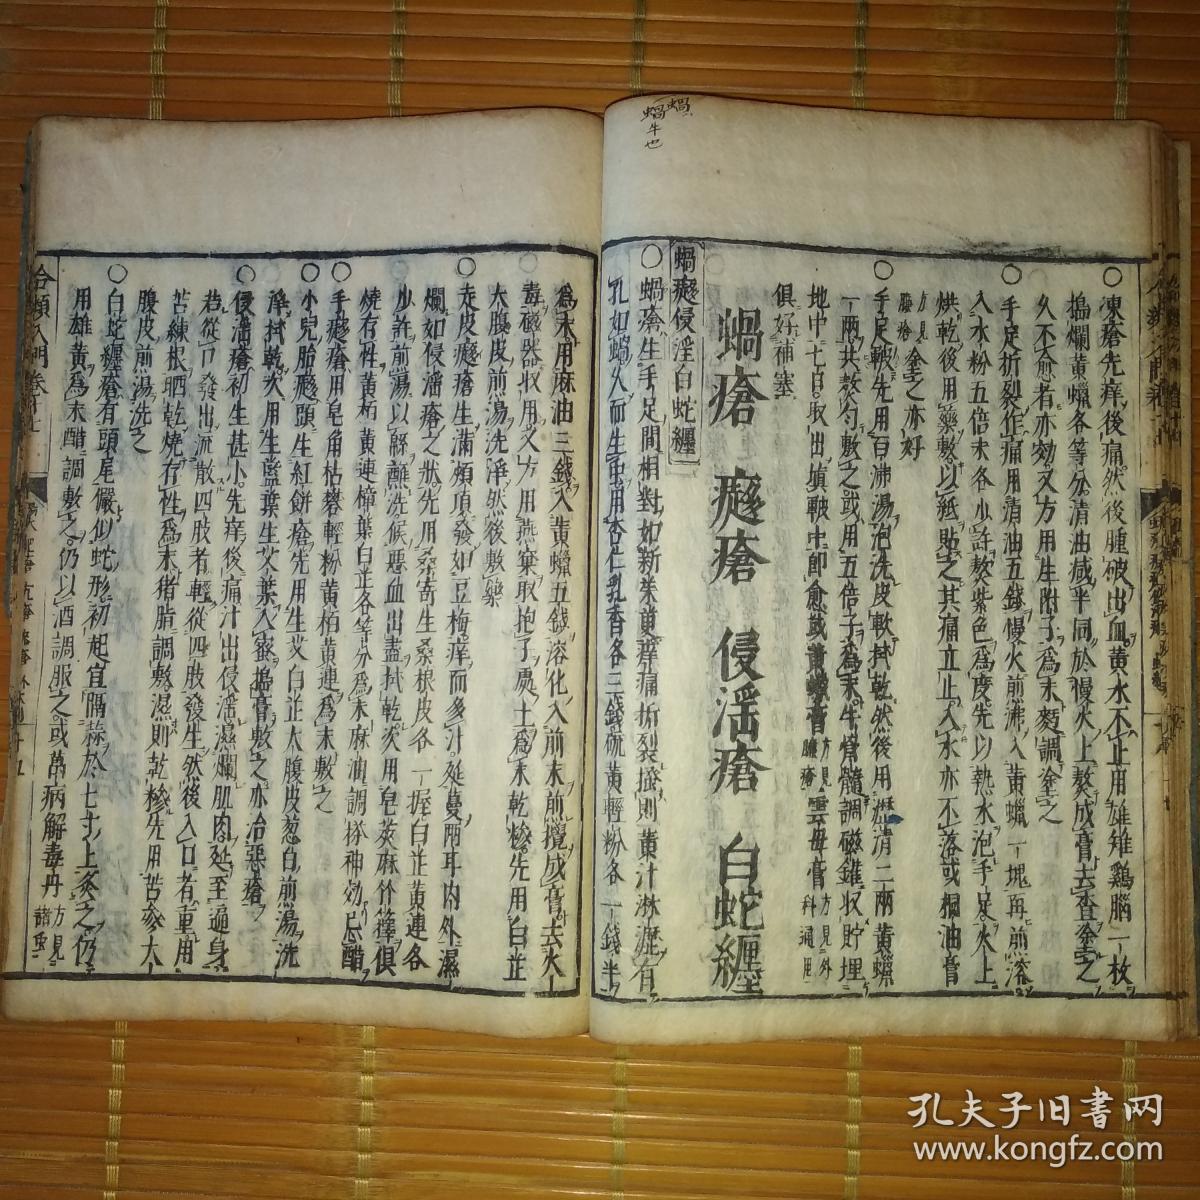 蝸
蝸牛也
○凍瘡先痒後痛然後腫破出血黄水不止用雄雉鷄腦一枚
搗爛黄蠟各等分清油減半同於慢火上熬成膏去査塗之
久不愈者亦効又方用生附子爲末麪調塗之
○手足折裂作痛用清油五錢慢火煎沸入黄蠟一塊再煎溶
入水粉五倍末各少許熬紫色爲度先以熱水泡手足火上
烘乾後用藥敷以紙貼之其痛立止入水亦不落或桐油膏
方見臁瘡塗之亦好
○手足皸先用百沸湯泡洗皮軟拭乾然後用瀝清二兩黄蠟
一兩共熬勻敷之或用五倍子爲末牛骨髓調磁錐収貯埋
地中七日取出塡皸中即愈或黄蠟膏方見臁瘡雲母膏方見外科通用
俱好補塞
蝸瘡 㾽瘡 侵滛瘡 白蛇纏
蝸㾽侵淫白蛇纏
○蝸瘡生手足間相對如新茱萸痒痛折裂搔則黄汁淋瀝有
孔如蝸久而生虫用杏仁乳香各三錢硫黄輕粉各一錢半
爲末用麻油三錢入黄蠟五錢溶化入前末煎攪成膏去火
毒磁器収用又方用燕窠取抱子處土爲末乾糝先用白芷
大腹皮煎湯洗淨然後敷藥
○走皮㾽瘡生滿頰項發如豆梅痒而多汁延蔓兩耳内外濕
爛如侵滛瘡之狀先用桑寄生桑根皮各一握白芷黄連各
少許煎湯以𦂌蘸洗候惡血出盡拭乾次用皂莢麻竹籜俱
燒存性黄栢黄連樟葉白芷各等分爲末麻油調搽神効忌醋
○手㾽瘡用皂角枯礬輕粉黄栢黄連爲末敷之
○小兒胎㾽頭生紅餅瘡先用生艾白芷大腹皮葱白煎湯洗
淨拭乾次用生藍葉生艾葉入蜜搗膏敷之亦治惡瘡
○侵滛瘡初生甚小先痒後痛汁出侵滛濕爛肌肉延至遍身
若從口發出流散四肢者輕從四肢發生然後入口者重用
苦練根晒乾燒存性爲末猪脂調敷濕則乾糝先用苦參大
腹皮煎湯洗之
○白蛇纏瘡有頭尾儼似蛇形初起宜隔蒜於七寸上灸之仍
用雄黄爲末醋調敷之仍以酒調服之或萬病解毒丹方見諸蟲
孔夫子旧书网
www.kongfz.com